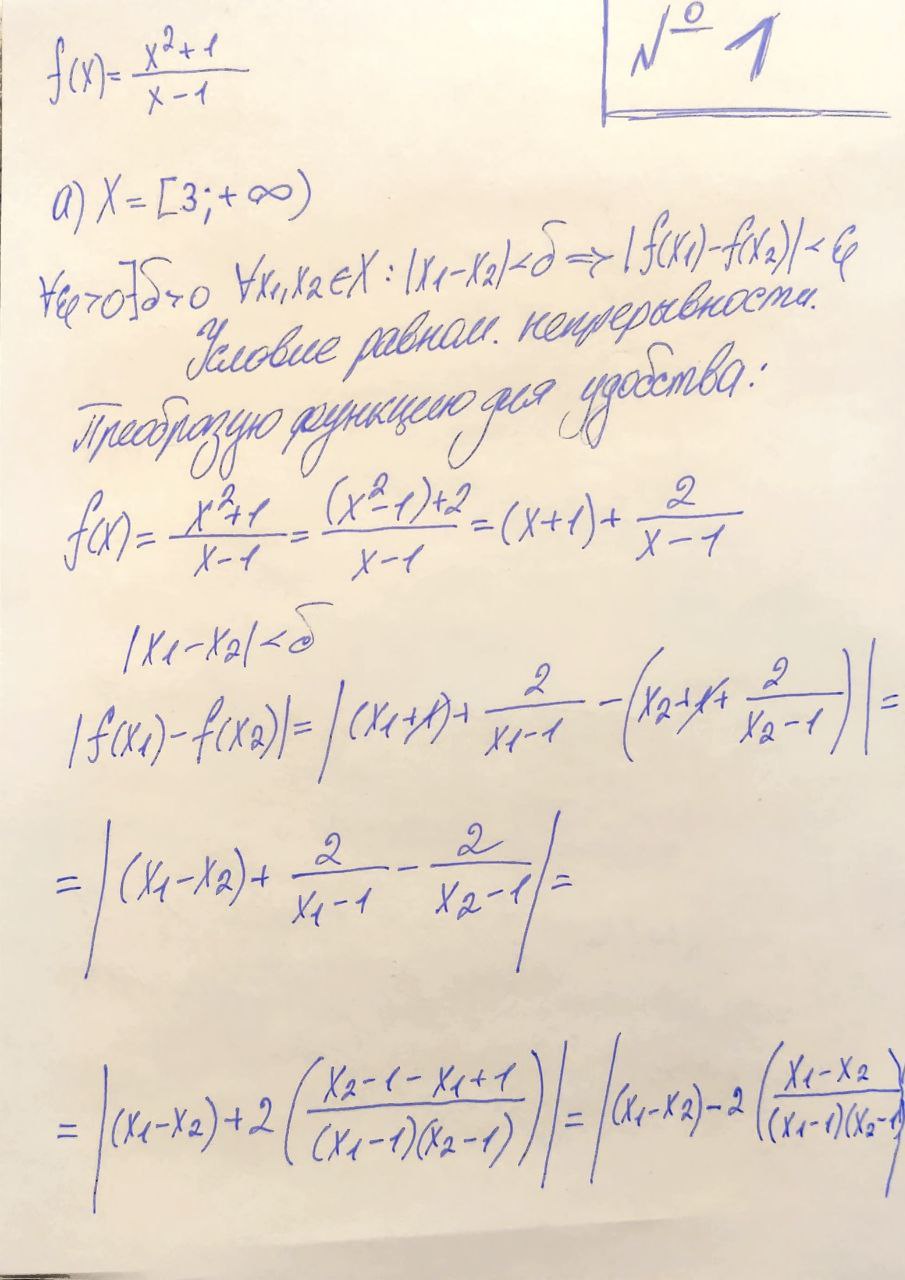 № 1
f(x) = (x²+1)/(x-1)
а) X = [3; +∞)
∀ε>0 ∃δ>0 ∀x₁,x₂∈X : |x₁-x₂|<δ ⇒ |f(x₁)-f(x₂)|<ε
Условие равном. непрерывности.
Преобразую функцию для удобства:
f(x) = (x²+1)/(x-1) = ((x²-1)+2)/(x-1) = (x+1) + 2/(x-1)
|x₁-x₂|<δ
|f(x₁)-f(x₂)| = |(x₁+1) + 2/(x₁-1) - (x₂+1+ 2/(x₂-1))| =
= |(x₁-x₂) + 2/(x₁-1) - 2/(x₂-1)| =
= |(x₁-x₂) + 2((x₂-1-x₁+1)/((x₁-1)(x₂-1)))| = |(x₁-x₂) - 2((x₁-x₂)/((x₁-1)(x₂-1)))|